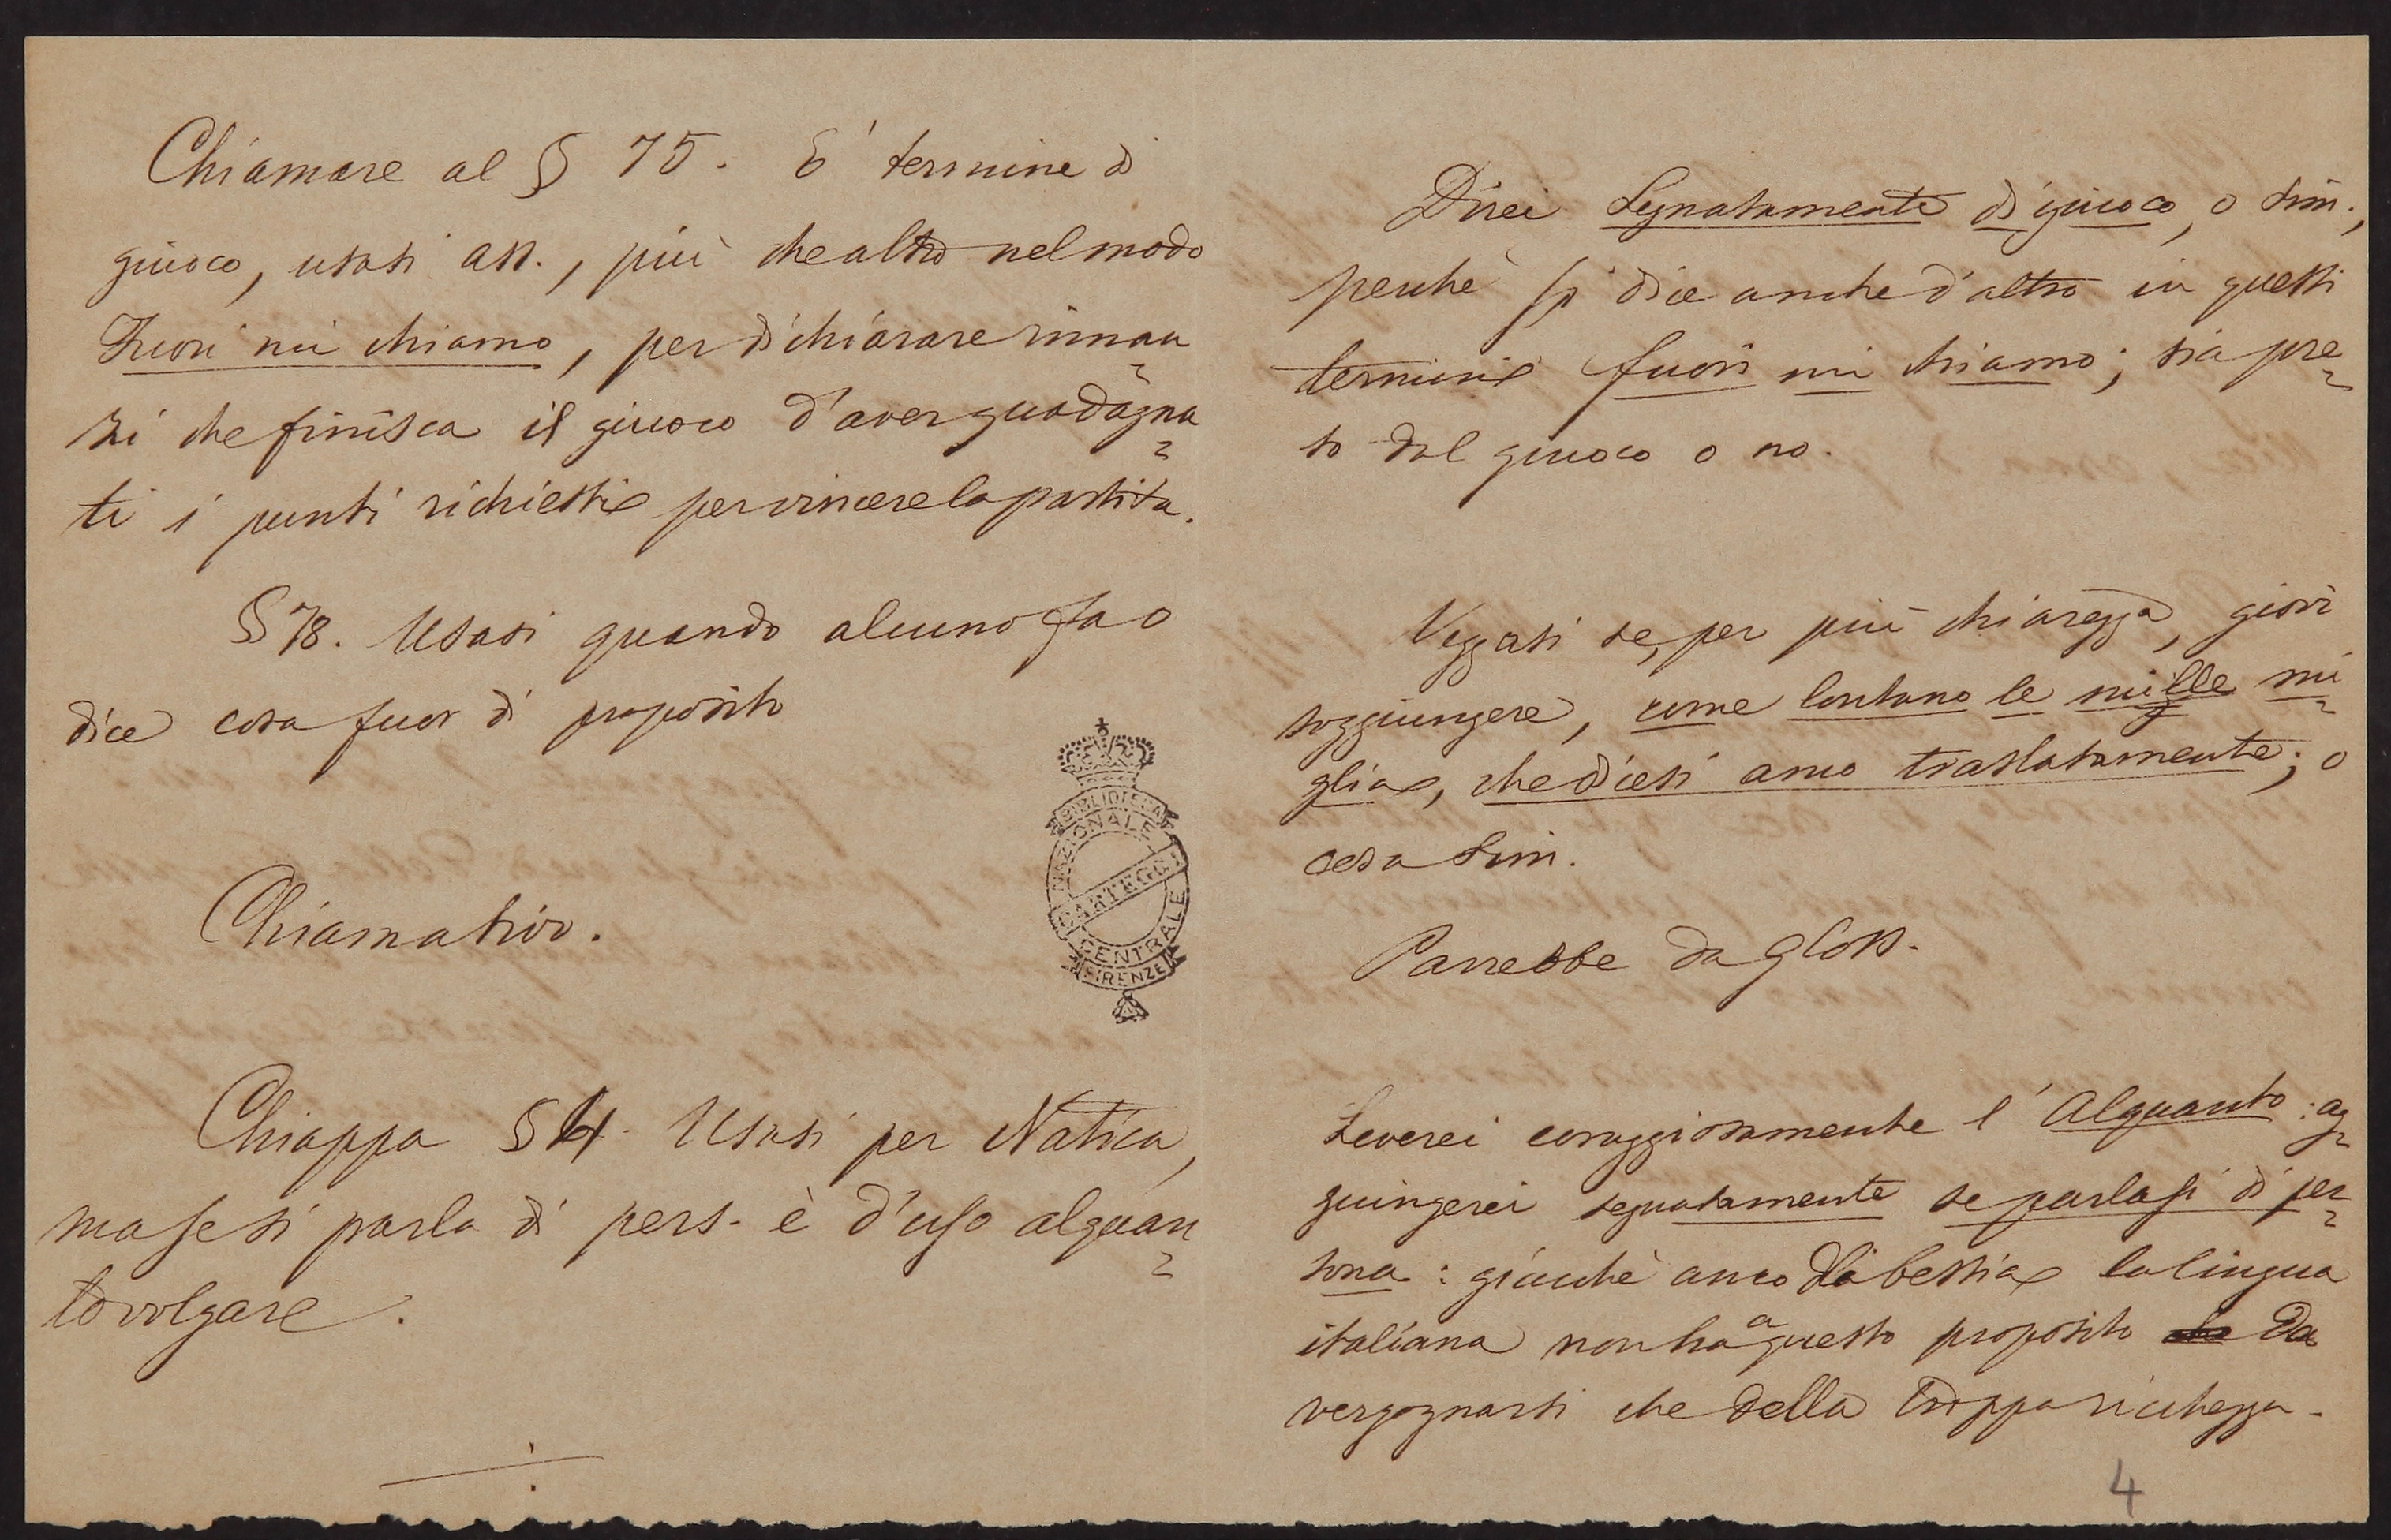 Chiamare al § 75. E' termine di
giuoco, usasi ass., più che altro nel modo
Fuori mi chiamo, per dichiarare innan=
zi che finisca il giuoco d'aver guadagna=
ti i punti richiesti per vincere la partita.
§ 78. Usasi quando alcuno fa o
dice cosa fuor di proposito
Chiamativo.
Chiappa § 4. Usasi per Natica,
ma se si parla di pers. è d'uso alquan=
to volgare.
BIBLIOTECA
NAZIONALE
CARTEGGI
CENTRALE
FIRENZE
Direi segnatamente di giuoco, o sim.,
perchè si dice anche d'altro in questi
termini fuori mi chiamo; sia pre=
so dal giuoco o no.
Veggasi se, per più chiarezza, giovi
soggiungere, come lontano le mille mi=
glia, che dicesi anco traslatamente; o
cosa sim.
Parrebbe da gloss.
Leverei coraggiosamente l'Alquanto: ag=
giungerei segnatamente se parlasi di per=
sona: giacchè anco di bestia la lingua
italiana non ha a questo proposito da
vergognarsi che della troppa ricchezza.
4